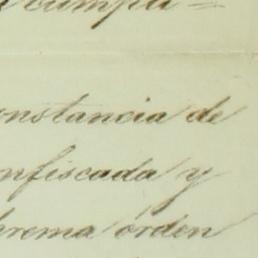 cumpa=
onstancia de
nfiscada y
prema orden